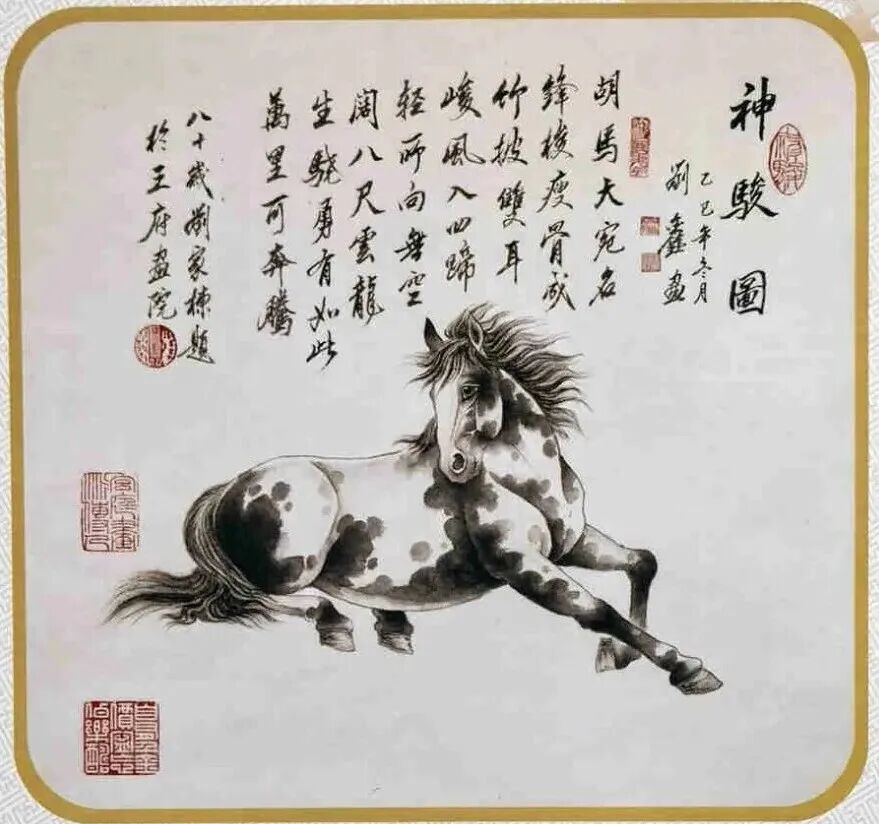 神駿圖
乙巳年冬月
劉鑫畫
胡馬大宛名
鋒棱瘦骨成
竹披雙耳
峻風入四蹄
轻所向無空
闊八尺雲龍
生驍勇有如此
萬里可奔騰
八十歲劉家棟題
於王府畫院